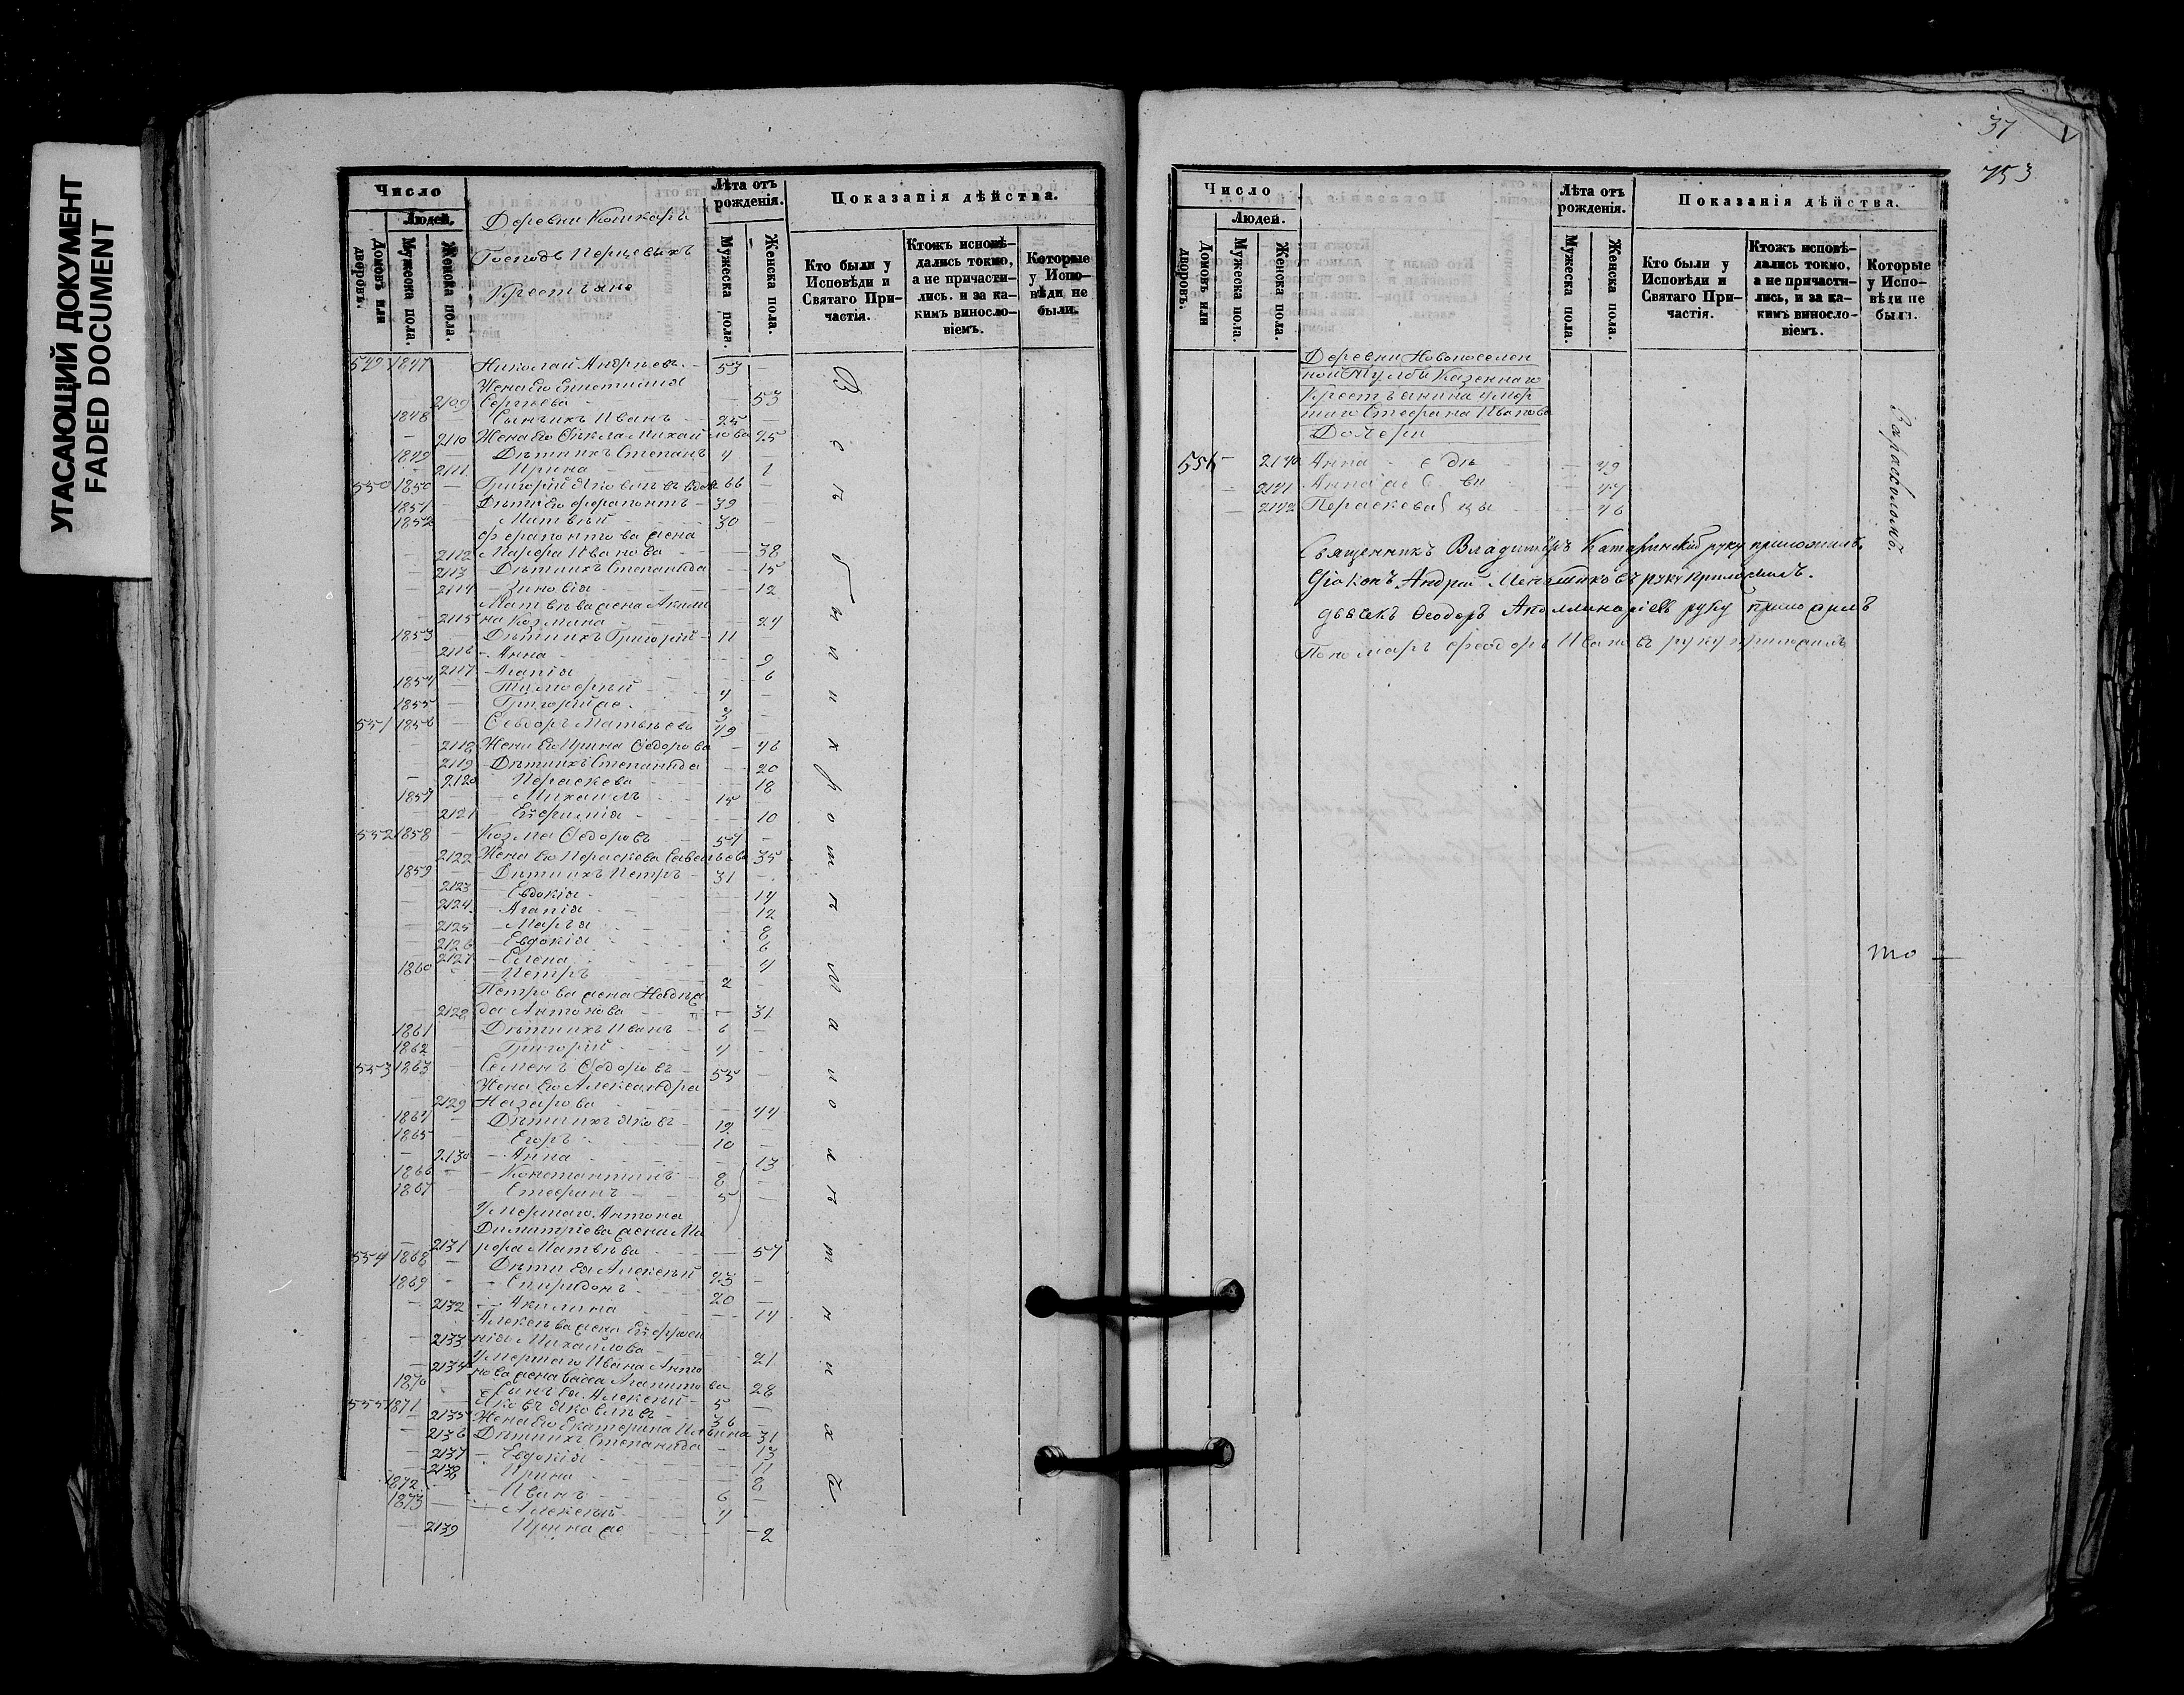 УГАСАЮЩИЙ ДОКУМЕНТ
FADED DOCUMENT
Число
Людей.
Домовъ или дворовъ.
Мужеска пола.
Женска пола.
Деревни Кошкаръ
Господъ Перцевыхъ
Крестьяне
Лѣта отъ рожденія.
Мужеска пола.
Женска пола.
Показанія дѣйства.
Кто были у Исповѣди и Святаго Причастія.
Ктожъ исповѣдались токмо, а не причастились, и за какимъ винословіемъ.
Которые у Исповѣди не были.
549 1847 Николай Андрѣевъ 53 —
Жена его
2109 Сергѣева 53
1848 Сынъ ихъ Иванъ 25
2110 Жена его Ѳекла Михайлова 25
1849 Дѣти ихъ Степанъ 4 —
2111 Ирина 1
550 1850 — Григорій Яковлевъ вдовъ 66 —
1851 Дѣти его Ферапонтъ 39
1852 Матвѣй 30 —
Ферапонтова жена
2112 Марфа Иванова — 38
2113 Дѣти ихъ Степанида — 15
2114 Зиновія — 12
Матвѣева жена Акили
2115 на Козмина 24
1853 Дѣти ихъ Григорій 11
2116 Анна 9
2117 Агапія 6
1854 Тимофей 4 —
1855 Григорій же 3
551 1856 — Ѳедоръ Матвѣевъ 49 —
2118 Жена его Ирина Ѳедорова — 46
2119 Дѣти ихъ Степанида 20
2120 Параскева 18
1857 Михаилъ 15
2121 Евфимія 10
552 1858 — Козма Ѳедоровъ 54 —
2122 Жена его Параскева Савельева 35
1859 Дѣти ихъ Петръ 31 —
2123 Евдокія 14
2124 Агапія 12
2125 Марья 8
2126 Евдокія 6
2127 Елена 4
1860 Петръ 2 —
Петрова жена Надеж
2128 да Антонова — 31
1861 Дѣти ихъ Иванъ 6 —
1862 Григорій 4 —
553 1863 — Семенъ Ѳедоровъ 55 —
Жена его Александра
2129 Назарова 44
1864 Дѣти ихъ Яковъ 19
1865 Егоръ 10 —
2130 Анна 13
1866 Константинъ 8 —
1867 Стефанъ 5 —
Умершаго Антона
Димитріева жена Ма
2131 рфа Матвѣева — 57
554 1868 — Дѣти ея Алексѣй 23 —
1869 Спиридонъ 20 —
2132 Акилина 14
Алексѣева жена Евфроси
2133 нія Михайлова 21
Умершаго Ивана Анто
2134 нова жена вдова Агапитова 28
1870 Сынъ ея Алексѣй 5 —
555 1871 Яковъ Яковлевъ 36
2135 Жена его Екатерина Ильина 31
2136 Дѣти ихъ Степанида 13
2137 Евдокія 11
2138 Ирина 8
1872 Иванъ 6 —
1873 Алексѣй 4
2139 Ирина же 2
37
753
Число
Людей.
Домовъ или дворовъ.
Мужеска пола.
Женска пола.
Лѣта отъ рожденія.
Мужеска пола.
Женска пола.
Показанія дѣйства.
Кто были у Исповѣди и Святаго Причастія.
Ктожъ исповѣдались токмо, а не причастились, и за какимъ винословіемъ.
Которые у Исповѣди не были.
Деревни Новопоселен
ной Тумбы Казеннаго
Крестьянина умер
шаго Стефана Иванова
Дочери
556 — 2140 Анна 49
2141 Анна же 47
2142 Параскева 46
За расколомъ.
Священникъ Владимиръ руку приложилъ.
Діаконъ Андрей Меньшиковъ руку приложилъ.
Дьячекъ Ѳеодоръ Аполлинаріевъ руку приложилъ
Пономарь Феодоръ Ивановъ руку приложилъ